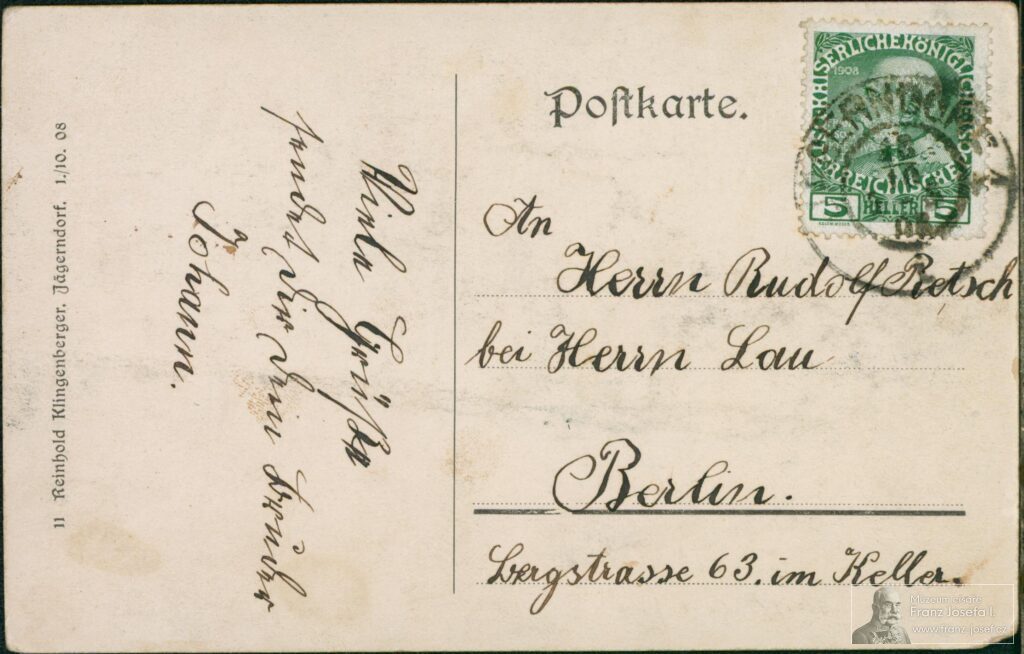 Postkarte.
KAISERLICHE KÖNIGLICHE
1908
ÖSTERREICHISCHE
5 HELLER 5
18
10
An
Herrn Rudolf Rotsch
bei Herrn Lau
Berlin.
Bergstrasse 63. im Keller.
Viele Grüße
sendet dir dein Bruder
Johann.
11 Reinhold Klingenberger, Jägerndorf. 1./10. 08
Muzeum císaře
Franz Josefa I.
www.franz-josef.cz